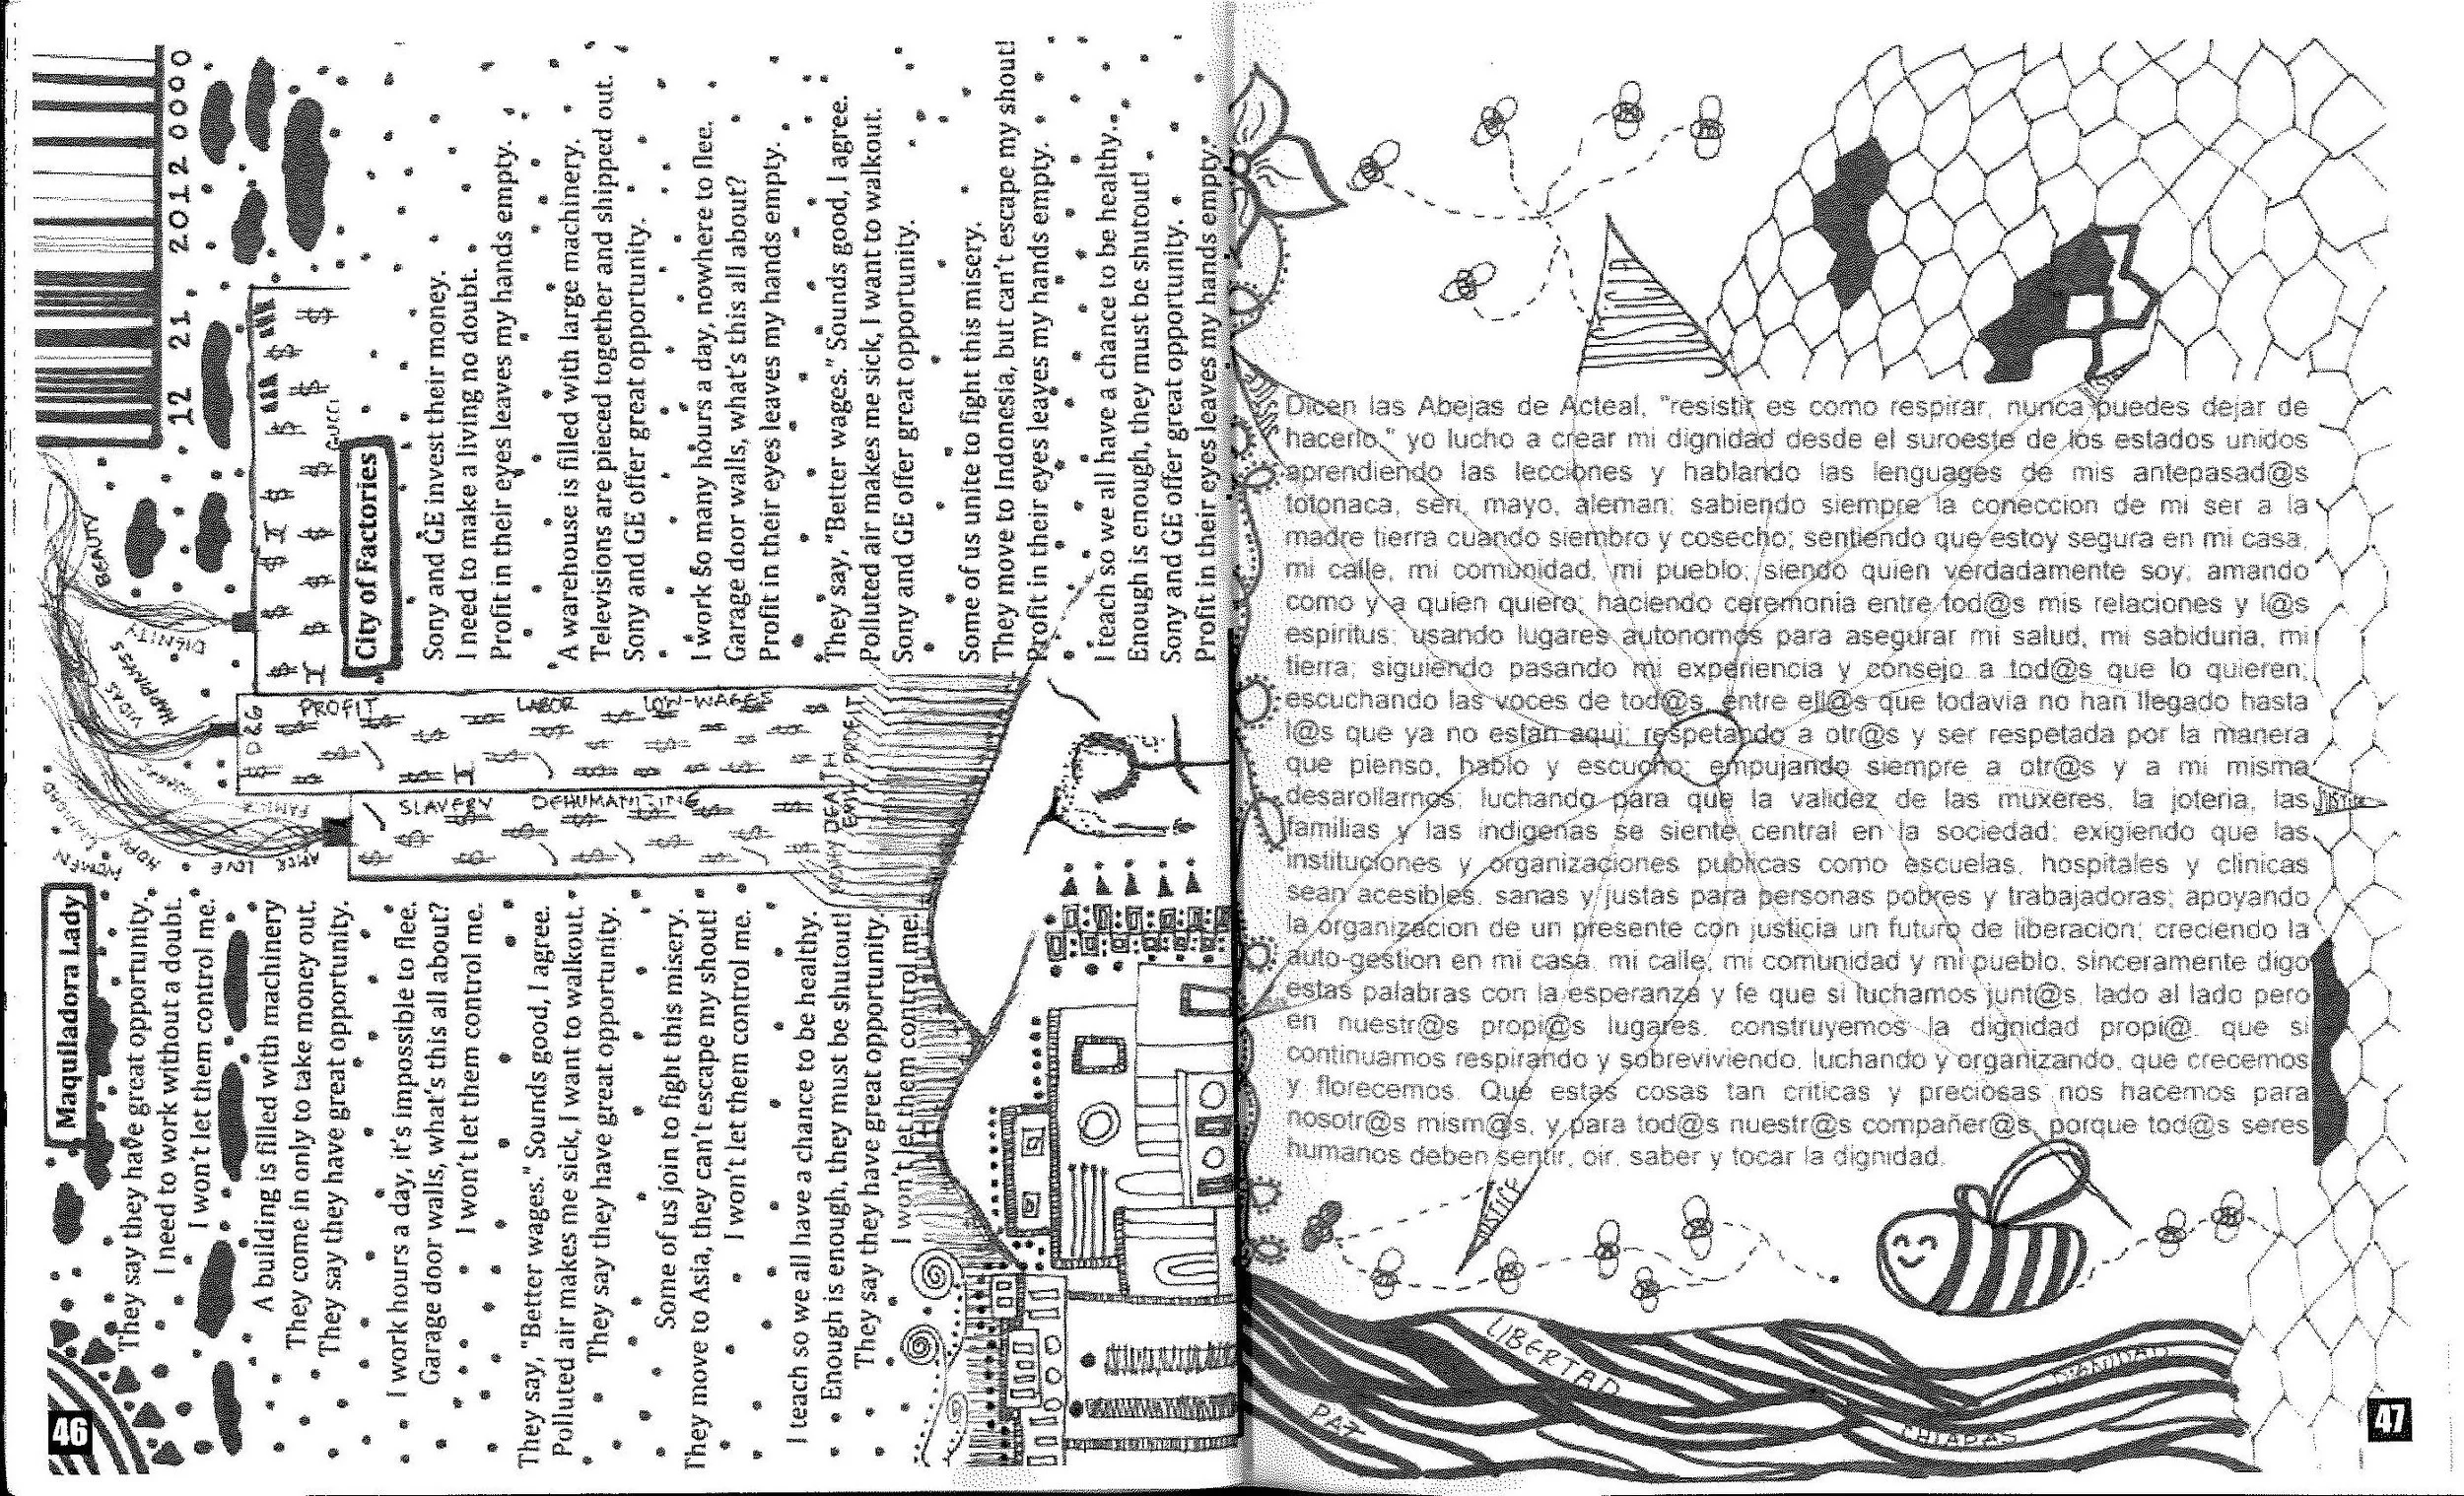 Maquiladora Lady
They say they have great opportunity.
I need to work without a doubt.
I won't let them control me.
A building is filled with machinery
They come in only to take money out.
They say they have great opportunity.
I work hours a day, it's impossible to flee.
Garage door walls, what's this all about?
I won't let them control me.
They say, "Better wages." Sounds good, I agree.
Polluted air makes me sick, I want to walkout.
They say they have great opportunity.
Some of us join to fight this misery.
They move to Asia, they can't escape my shout!
I won't let them control me.
I teach so we all have a chance to be healthy.
Enough is enough, they must be shutout!
They say they have great opportunity
I won't let them control me!
12 21 2012 0000
BEAUTY
DIGNITY
VIDAS
HAPPINESS
HOPE
LOVE
WOMEN
GUCCI
PROFIT
LABOR
LOW-WAGES
SLAVERY
DEHUMANITING
DEATH
PROFIT
City of Factories
Sony and GE invest their money.
I need to make a living no doubt.
Profit in their eyes leaves my hands empty.
A warehouse is filled with large machinery.
Televisions are pieced together and shipped out.
Sony and GE offer great opportunity.
I work so many hours a day, nowhere to flee.
Garage door walls, what's this all about?
Profit in their eyes leaves my hands empty.
They say, "Better wages." Sounds good, I agree.
Polluted air makes me sick, I want to walkout.
Sony and GE offer great opportunity.
Some of us unite to fight this misery.
They move to Indonesia, but can't escape my shout!
Profit in their eyes leaves my hands empty.
I teach so we all have a chance to be healthy.
Enough is enough, they must be shutout!
Sony and GE offer great opportunity.
Profit in their eyes leaves my hands empty.
46
Dicen las Abejas de Acteal, "resistir es como respirar, nunca puedes dejar de
hacerlo." yo lucho a crear mi dignidad desde el suroeste de los estados unidos
aprendiendo las lecciones y hablando las lenguages de mis antepasad@s
totonaca, seri, mayo, aleman; sabiendo siempre la coneccion de mi ser a la
madre tierra cuando siembro y cosecho; sentiendo que estoy segura en mi casa,
mi calle, mi comunidad, mi pueblo; siendo quien verdadamente soy; amando
como y a quien quiero; haciendo ceremonia entre tod@s mis relaciones y l@s
espiritus; usando lugares autonomos para asegurar mi salud, mi sabiduria, mi
tierra; siguiendo pasando mi experiencia y consejo a tod@s que lo quieren;
escuchando las voces de tod@s, entre ell@s que todavia no han llegado hasta
l@s que ya no estan aqui; respetando a otr@s y ser respetada por la manera
que pienso, hablo y escucho; empujando siempre a otr@s y a mi misma
desarollarnos; luchando para que la validez de las muxeres, la joteria, las
familias y las indigenas se siente central en la sociedad; exigiendo que las
instituciones y organizaciones publicas como escuelas, hospitales y clinicas
sean acesibles, sanas y justas para personas pobres y trabajadoras; apoyando
la organizacion de un presente con justicia un futuro de liberacion; creciendo la
auto-gestion en mi casa, mi calle, mi comunidad y mi pueblo. sinceramente digo
estas palabras con la esperanza y fe que si luchamos junt@s, lado al lado pero
en nuestr@s propi@s lugares, construyemos la dignidad propi@, que si
continuamos respirando y sobreviviendo, luchando y organizando, que crecemos
y florecemos. Que estas cosas tan criticas y preciosas nos hacemos para
nosotr@s mism@s, y para tod@s nuestr@s compañer@s, porque tod@s seres
humanos deben sentir, oir, saber y tocar la dignidad.
JUSTICE
LIBERTAD
PAZ
CHIAPAS
DIGNIDAD
47